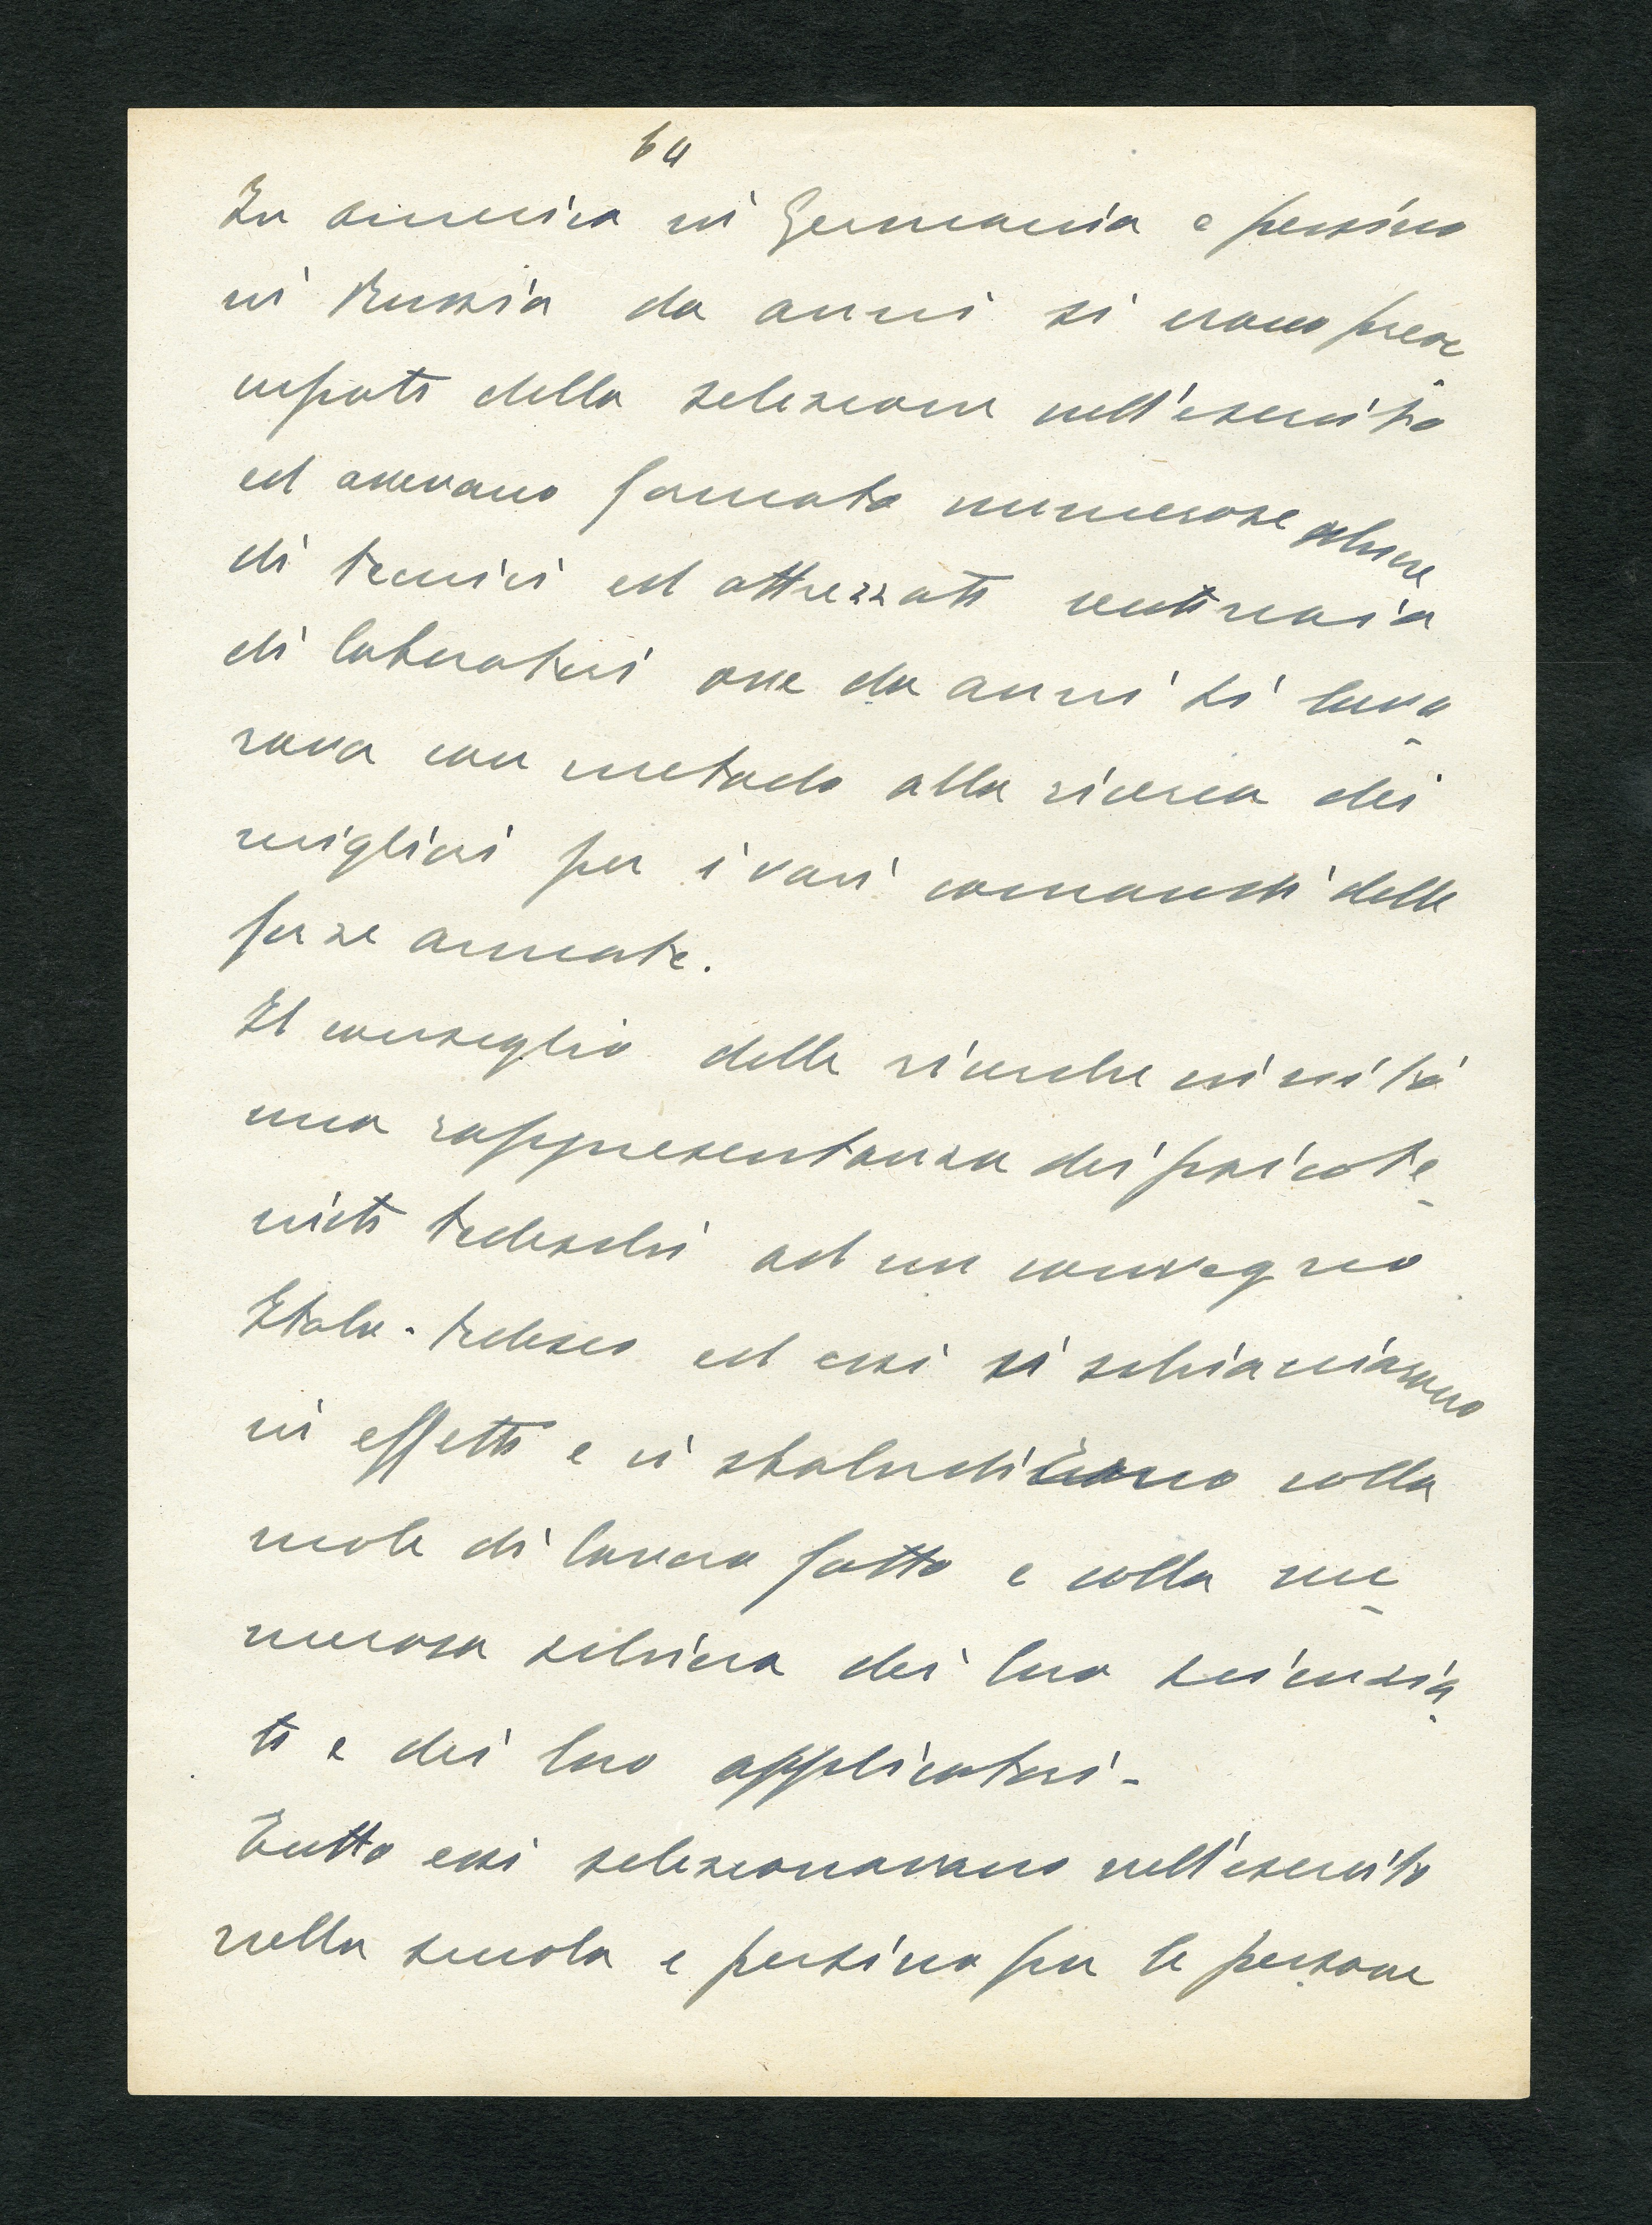 64
In america in Germania e persino
in Russia da anni si erano preoc-
cupati della selezione nell'esercito
ed avevano formato numerose schiere
di tecnici ed attrezzati centinaia
di laboratori ove da anni si lavo-
rava con metodo alla ricerca dei
migliori per i vari comandi delle
forze armate.
Il consiglio delle ricerche invitò
una rappresentanza dei psicote-
cnici tedeschi ad un convegno
Italo-tedesco ed essi ci schiacciarono
in effetti e ci sbalordirono colla
mole di lavoro fatto e colla nu-
merosa schiera dei loro scienzia-
ti e dei loro applicatori-
Tutto essi selezionavano nell'esercito
nella scuola e persino per le persone